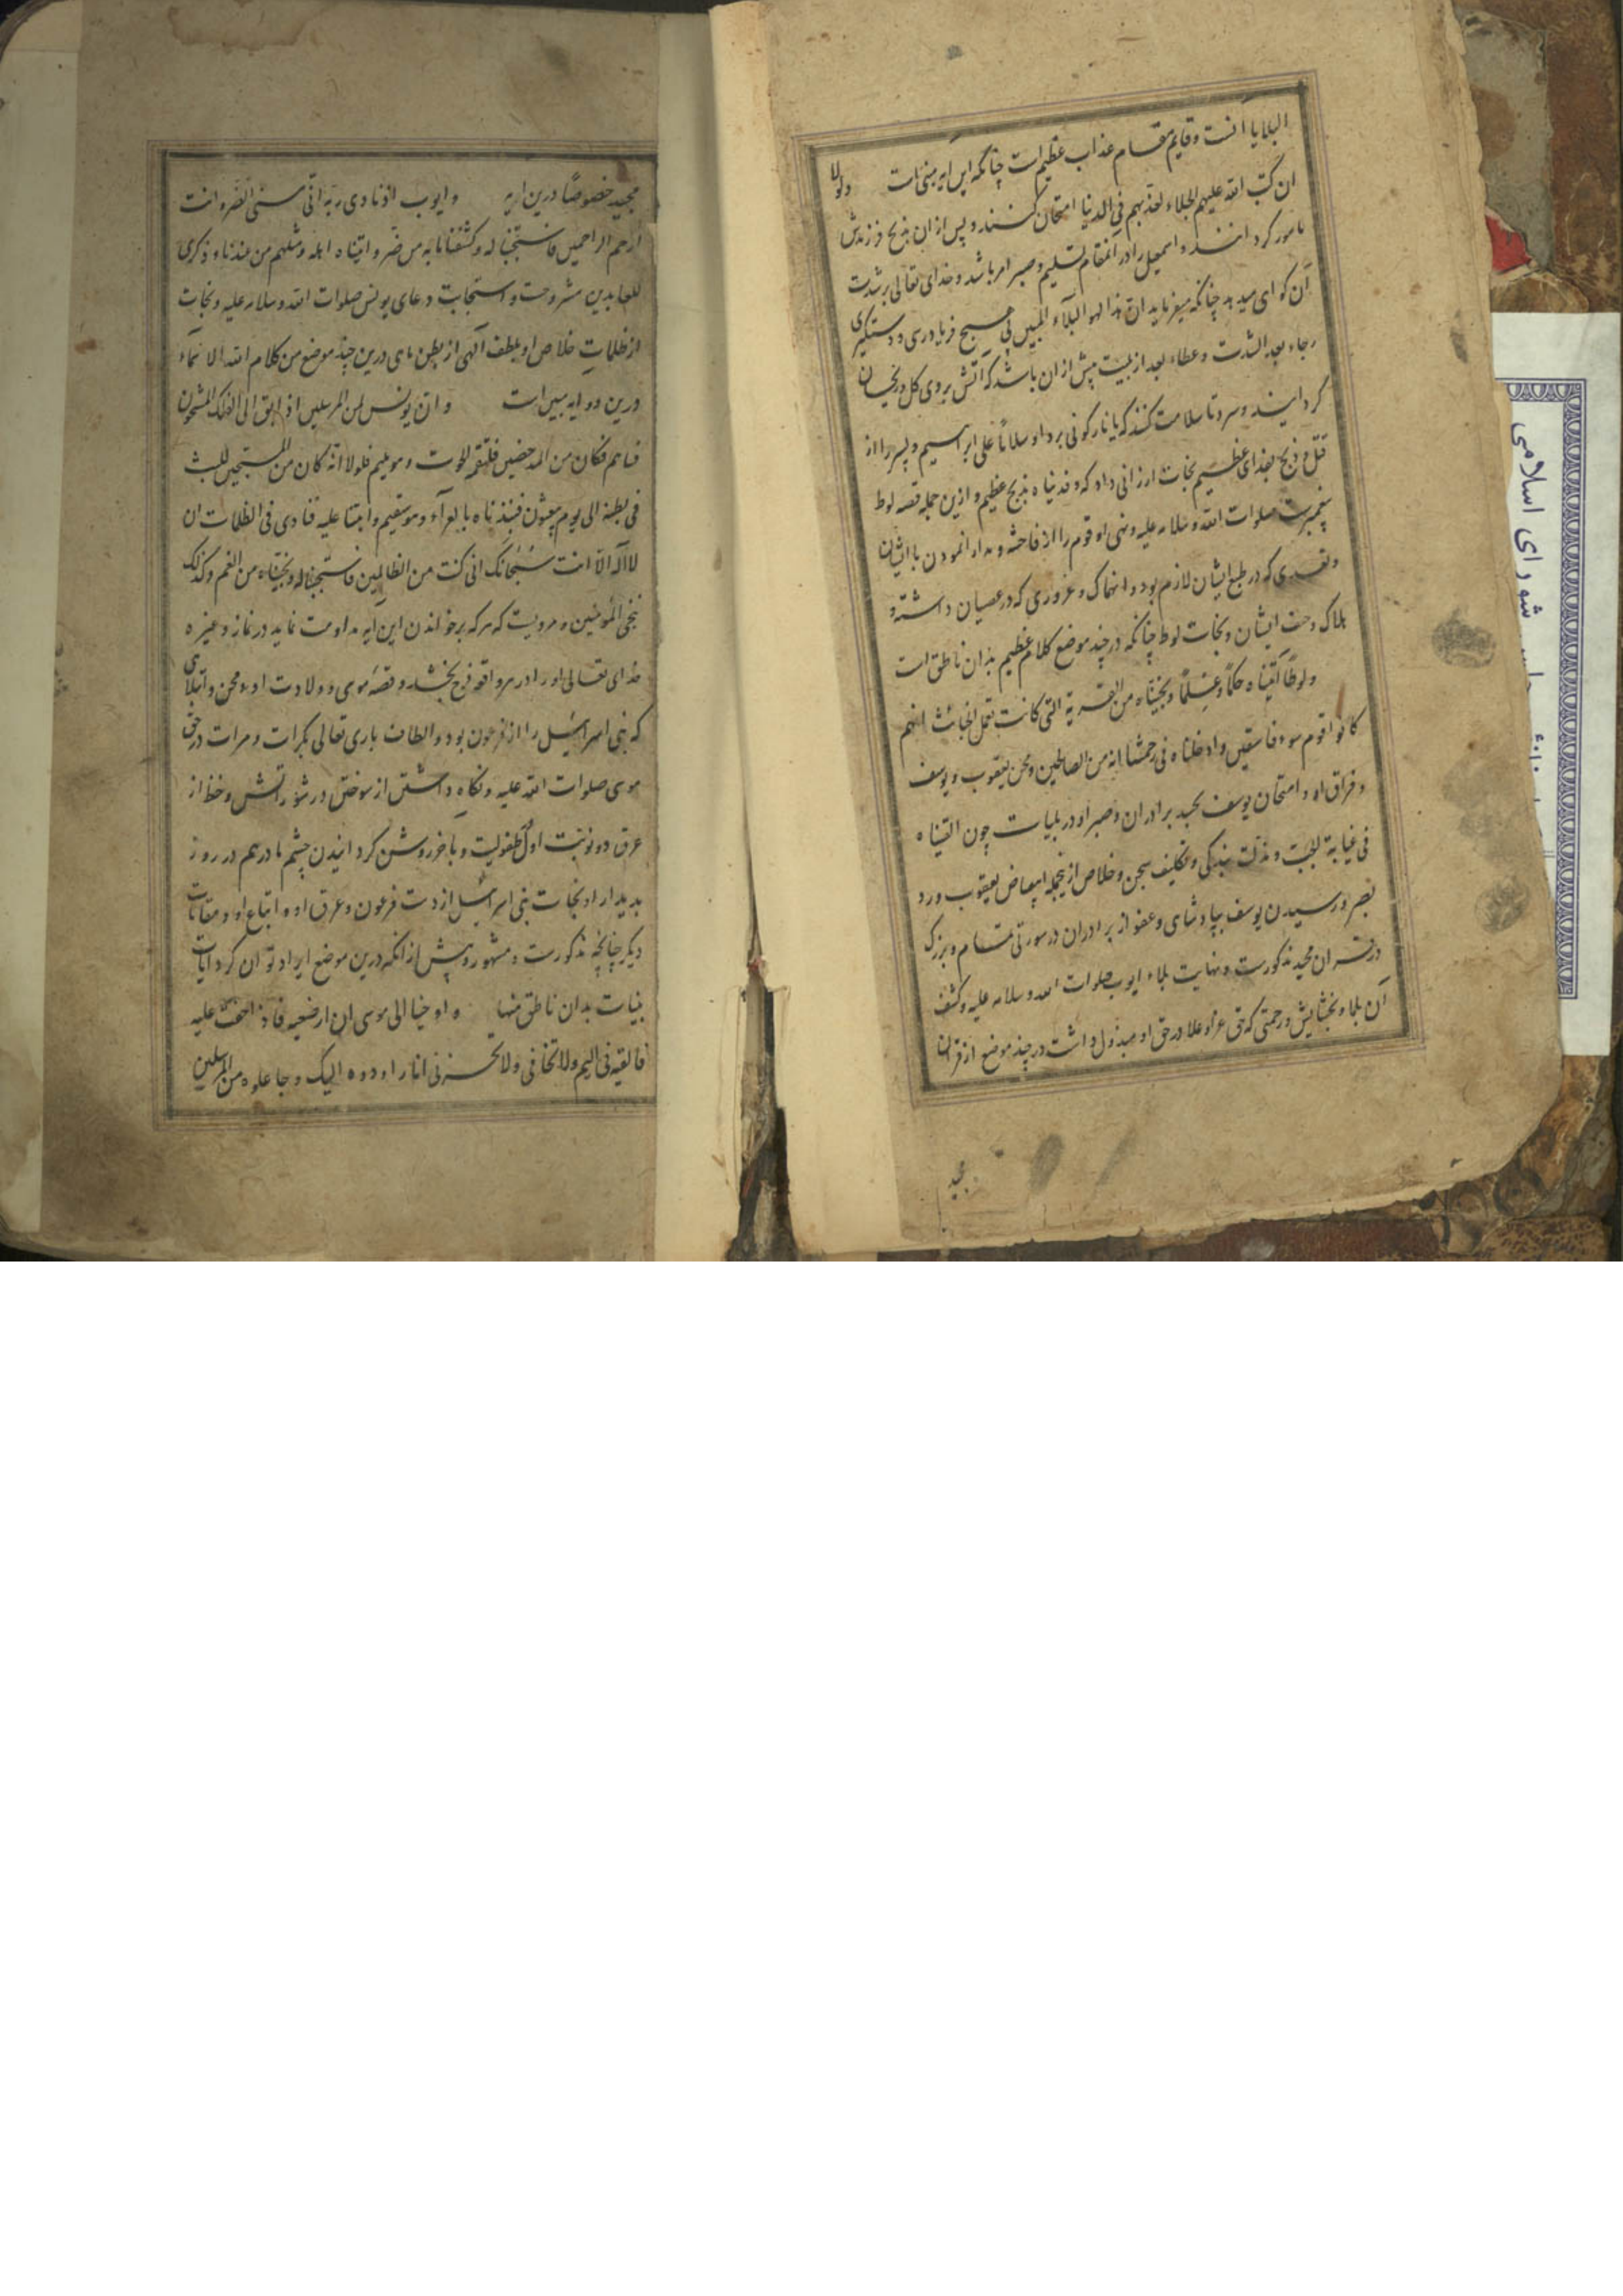 البلایا آنست و قایم مقام عذاب عظیم است چنانکه این آیه مبنی است ولولا
ان کتب الله علیهم الجلاء لعذبهم فی الدنیا امتحان کنند و پس از ان بذبح فرزندش
مامور کردانند و اسمعیل را در آن مقام تسلیم و صبر امر باشد و خدای تعالی بر شدت
آن کوای میدهد چنانکه میفرماید ان هذا لهو البلاء المبین بی هیچ فریادرسی و دستکیری
رجاء بعد الشدت و عطاء بعد از بلیت بیش از ان باشد که آتش بروی کل و ریحان
کردانیند و سرد تا سلامت کنند که یا نار کونی بردا و سلاما علی ابراهیم و پسر را از
قتل و ذبح بفدای عظیم نجات ارزانی داد که و فدیناه بذبح عظیم و ازین جمله قصه لوط
پیغمبرست صلوات الله و سلامه علیه و نهی او قوم را از فاحشه و مدارا نمودن با ایشان
و تعدی که در طبع ایشان لازم بود و انهماک و غروری که در عصیان داشته و
هلاک و خسف ایشان و نجات لوط چنانکه در چند موضع کلام عظیم بذان ناطق است
ولوطا آتیناه حکما وعلما ونجیناه من القریة التی کانت تعمل الخبائث انهم
کانوا قوم سوء فاسقین وادخلناه فی رحمتنا انه من الصالحین و محن یعقوب و یوسف
و فراق او و امتحان یوسف بحسد برادران و صبر او در بلیات چون القیناه
فی غیابة الجب و مذلت بندکی و تکلیف سجن و خلاص ازینجمله ابیضاض یعقوب و رد
بصر و رسیدن یوسف بپادشاهی و عفو از برادران در سورتی تمام و بزرک
در قران مجید مذکورست و نهایت بلاء ایوب صلوات الله و سلامه علیه و کشف
آن بلاء و بخشایش و رحمتی که حق عز و علا در حق او مبذول داشت در چند موضع از قران
مجید
مجید خصوصا درین ایه وایوب اذ نادی ربه انی مسنی الضر وانت
ارحم الراحمین فاستجبنا له وکشفنا ما به من ضر واتیناه اهله ومثلهم من عندنا وذکری
للعابدین مشروحست و استجابت دعای یونس صلوات الله و سلامه علیه و نجات
از ظلمات خلاص او بلطف آلهی از بطن ماهی درین چند موضع من کلام الله الا نماء
درین دو ایه مبین است وان یونس لمن المرسلین اذ ابق الی الفلک المشحون
فساهم فکان من المدحضین فلتقمه الحوت وهو ملیم فلولا انه کان من المسبحین للبث
فی بطنه الی یوم یبعثون فنبذناه بالعرآء وهو سقیم وانبتنا علیه فنادی فی الظلمات ان
لا اله الا انت سبحانک انی کنت من الظالمین فاستجبنا له ونجیناه من الغم وکذلک
ننجی المؤمنین و مرویست که هرکه برخواندن این ایه مداومت نماید در نماز و غیره
خدای تعالی او را در هر واقعه فرج بخشد و قصه موسی و ولادت او و محن و ابتلای
که بنی اسرائیل را از فرعون بود و الطاف باری تعالی بکرات و مرات در حق
موسی صلوات الله علیه و نکاه داشتن از سوختن در شور اتش و حفظ از
غرق دو نوبت اول طفولیت و باخر روشن کردانیدن چشم مادرهم در روز
بدیدار او نجات بنی اسرائیل از دست فرعون و غرق او و اتباع او و مقامات
دیکر چنانچه مذکورست و مشهور و پیش از انکه درین موضع ایراد توان کرد آیات
بینات بدان ناطق منها واوحینا الی موسی ان ارضعیه فاذا خفت علیه
فالقیه فی الیم ولا تخافی ولا تحزنی انا رادوه الیک وجاعلوه من المرسلین
شورای اسلامی